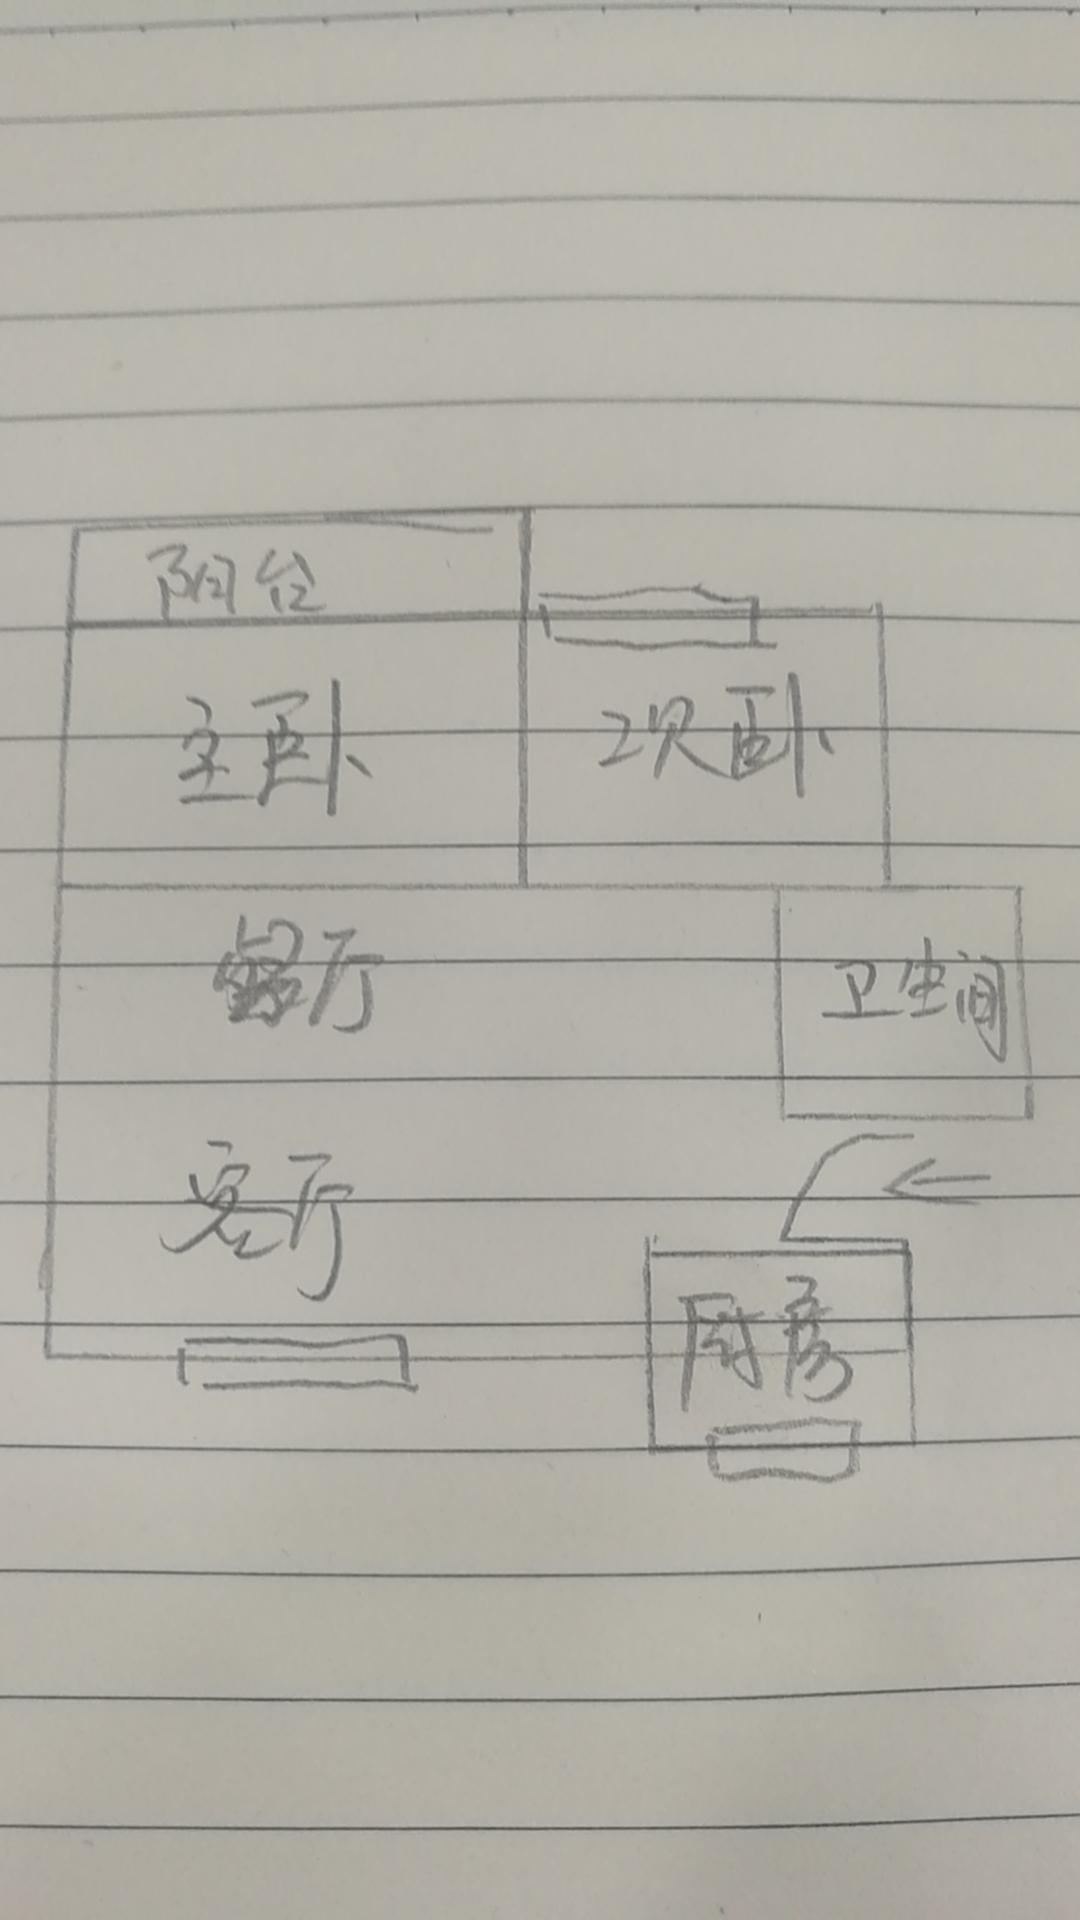 阳台
主卧
次卧
餐厅
卫生间
客厅
厨房